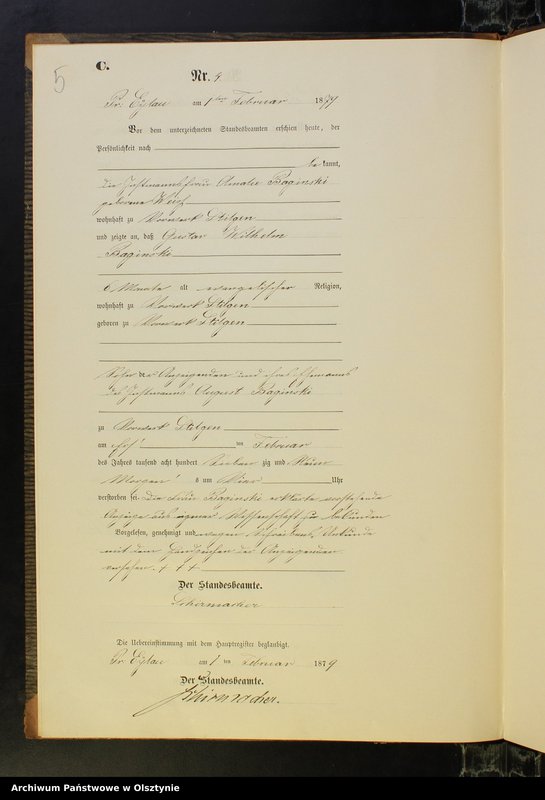 5
C.
Nr. 9.
Pr. Eylau am 1ten Februar 1879
Vor dem unterzeichneten Standesbeamten erschien heute, der
Persönlichkeit nach
bekannt,
die Instmannsfrau Amalie Baginski
geborene
wohnhaft zu Vorwerk Stilgen
und zeigte an, daß Gustav Wilhelm
Baginski
6 Monate alt evangelischer Religion,
wohnhaft zu Vorwerk Stilgen
geboren zu Vorwerk Stilgen
Sohn der Anzeigenden und ihres Ehemanns
des Instmanns August Baginski
zu Vorwerk Stilgen
am Februar
des Jahres tausend acht hundert sieben zig und neun
Morgens um vier Uhr
verstorben sei. Die Frau Baginski erklärte vorstehende
Anzeige aus eigener Wissenschaft zu bekunden
Vorgelesen, genehmigt und wegen
mit dem Handzeichen der Anzeigenden
versehen. + + +
Der Standesbeamte.
Schirmacher
Die Uebereinstimmung mit dem Hauptregister beglaubigt.
Pr. Eylau am 1 ten Februar 1879
Der Standesbeamte.
Schirmacher.
Archiwum Państwowe w Olsztynie